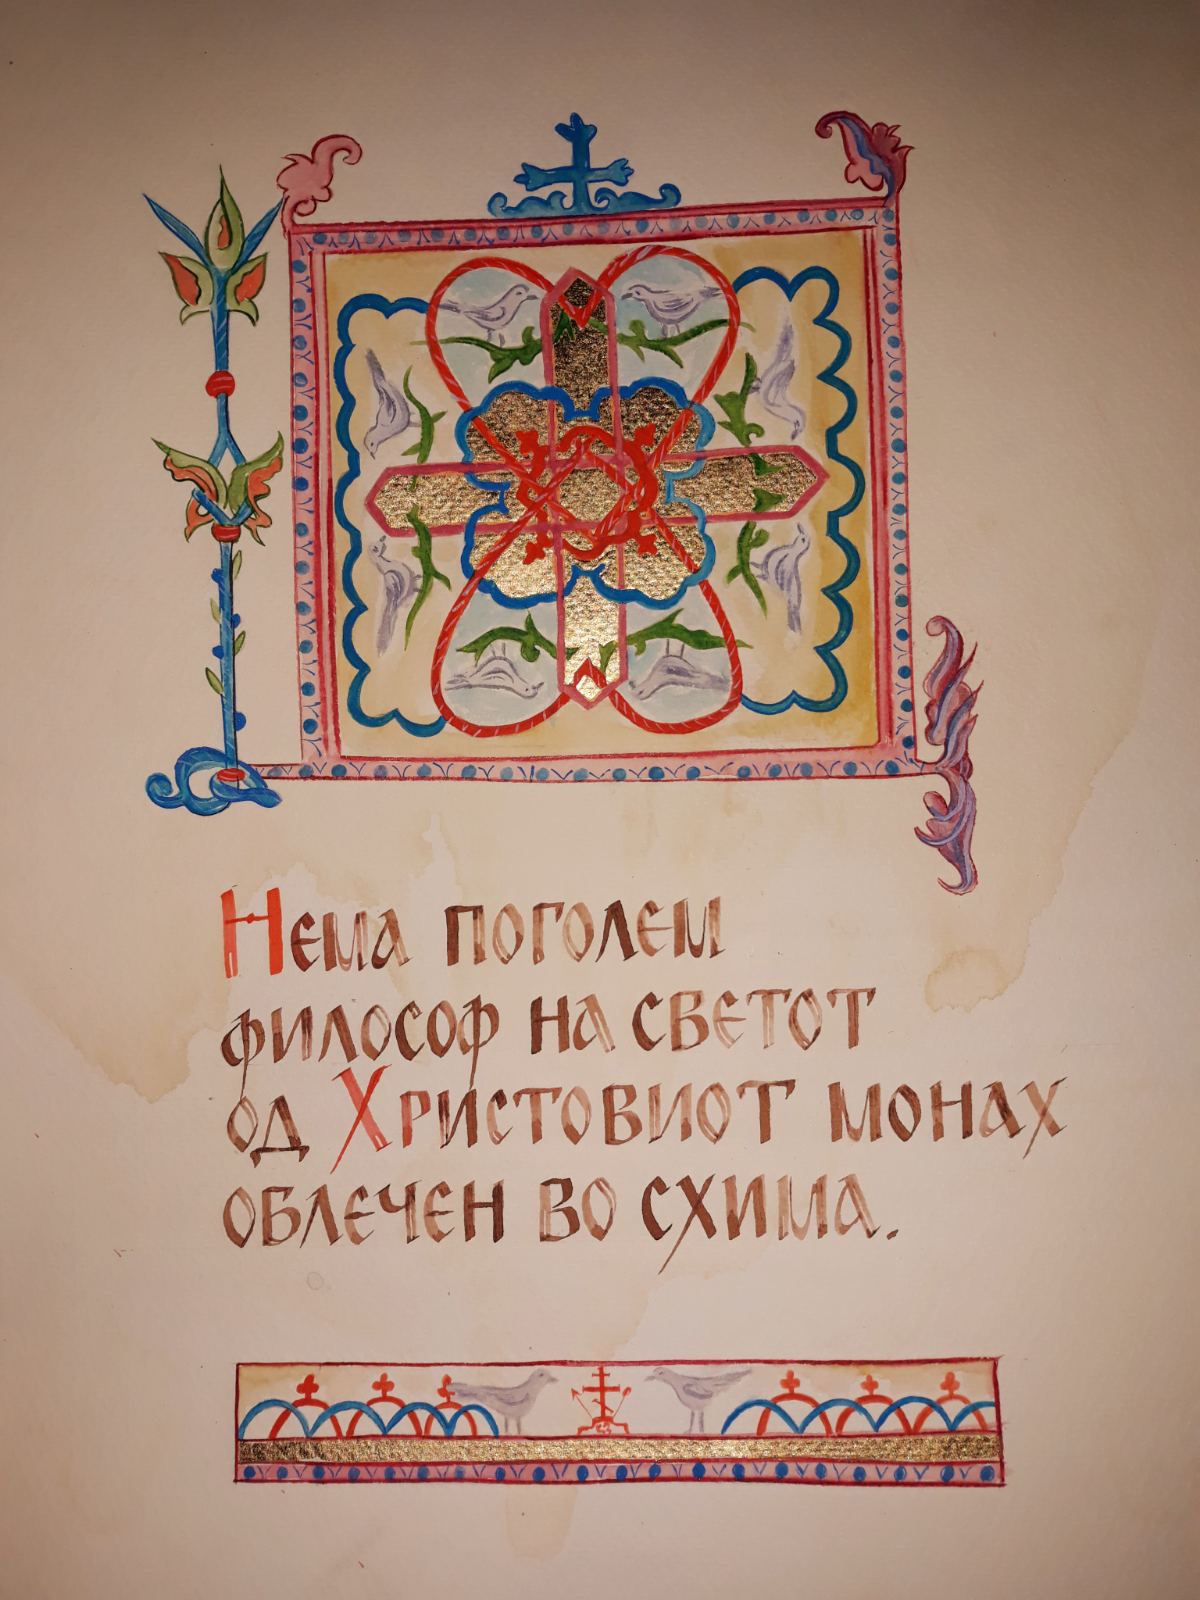 Нема поголем
философ на светот
од Христовиот монах
облечен во схима.